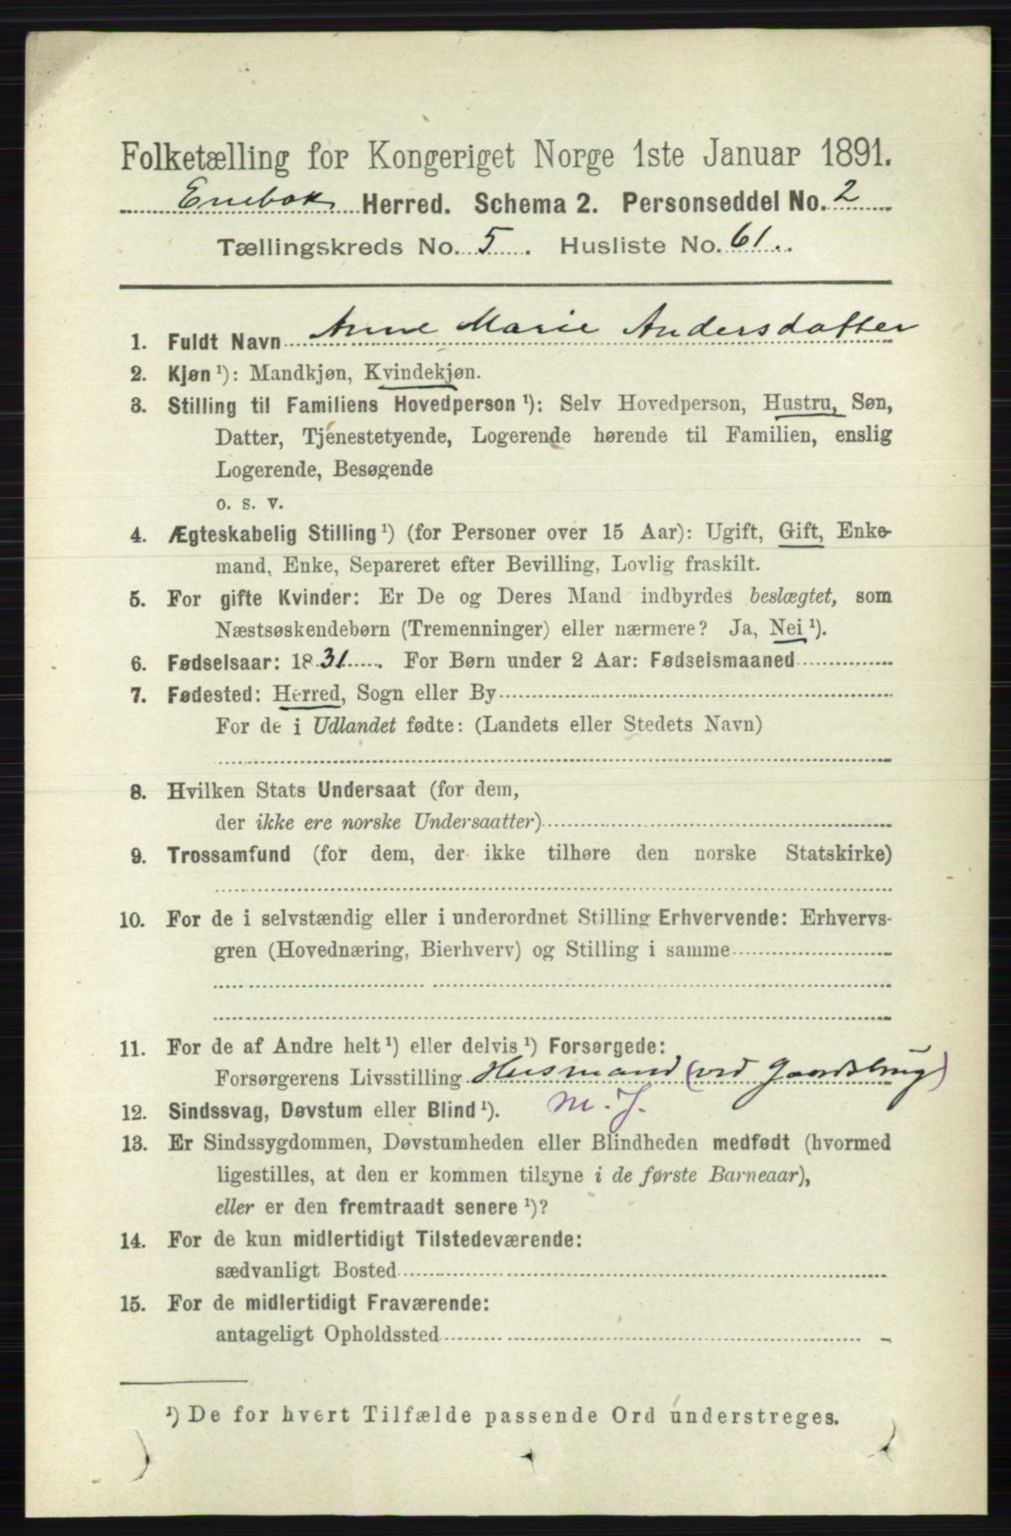 Folketælling for Kongeriget Norge 1ste Januar 1891.
Enebak Herred. Schema 2. Personseddel No. 2
Tællingskreds No. 5. Husliste No. 61.
1. Fuldt Navn Anne Marie Andersdatter
2. Kjøn ¹): Mandkjøn, Kvindekjøn.
3. Stilling til Familiens Hovedperson ¹): Selv Hovedperson, Hustru, Søn,
Datter, Tjenestetyende, Logerende hørende til Familien, enslig
Logerende, Besøgende
o. s. v.
4. Ægteskabelig Stilling ¹) (for Personer over 15 Aar): Ugift, Gift, Enke-
mand, Enke, Separeret efter Bevilling, Lovlig fraskilt.
5. For gifte Kvinder: Er De og Deres Mand indbyrdes beslægtet, som
Næstsøskendebørn (Tremenninger) eller nærmere? Ja, Nei ¹).
6. Fødselsaar: 1831. For Børn under 2 Aar: Fødselsmaaned
7. Fødested: Herred, Sogn eller By
For de i Udlandet fødte: (Landets eller Stedets Navn)
8. Hvilken Stats Undersaat (for dem,
der ikke ere norske Undersaatter)
9. Trossamfund (for dem, der ikke tilhøre den norske Statskirke)
10. For de i selvstændig eller i underordnet Stilling Erhvervende: Erhvervs-
gren (Hovednæring, Bierhverv) og Stilling i samme
11. For de af Andre helt ¹) eller delvis ¹) Forsørgede:
Forsørgerens Livsstilling Husmand (ved Gaardsbrug)
12. Sindssvag, Døvstum eller Blind ¹). M. J.
13. Er Sindssygdommen, Døvstumheden eller Blindheden medfødt (hvormed
ligestilles, at den er kommen tilsyne i de første Barneaar),
eller er den fremtraadt senere ¹)?
14. For de kun midlertidigt Tilstedeværende:
sædvanligt Bosted
15. For de midlertidigt Fraværende:
antageligt Opholdssted
¹) De for hvert Tilfælde passende Ord understreges.